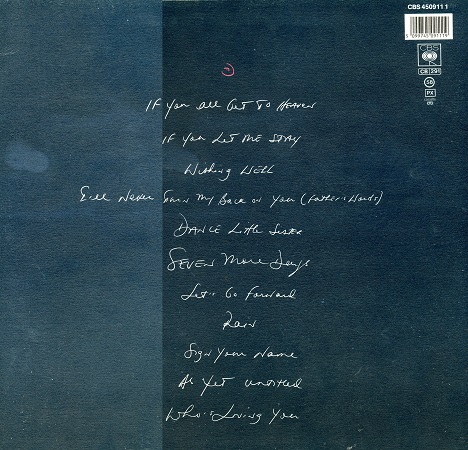 CBS 450911 1
5 099745 091119
CBS
CB 291
PX
IF You All Get To HEAVEN
IF You Let ME STAY
Wishing WELL
I'll Never Turn My Back on You (Father's Words)
DANCE Little SisteR
SEVEN More Days
Let's Go Forward
RAIN
Sign Your Name
As Yet Untitled
Who's Loving You